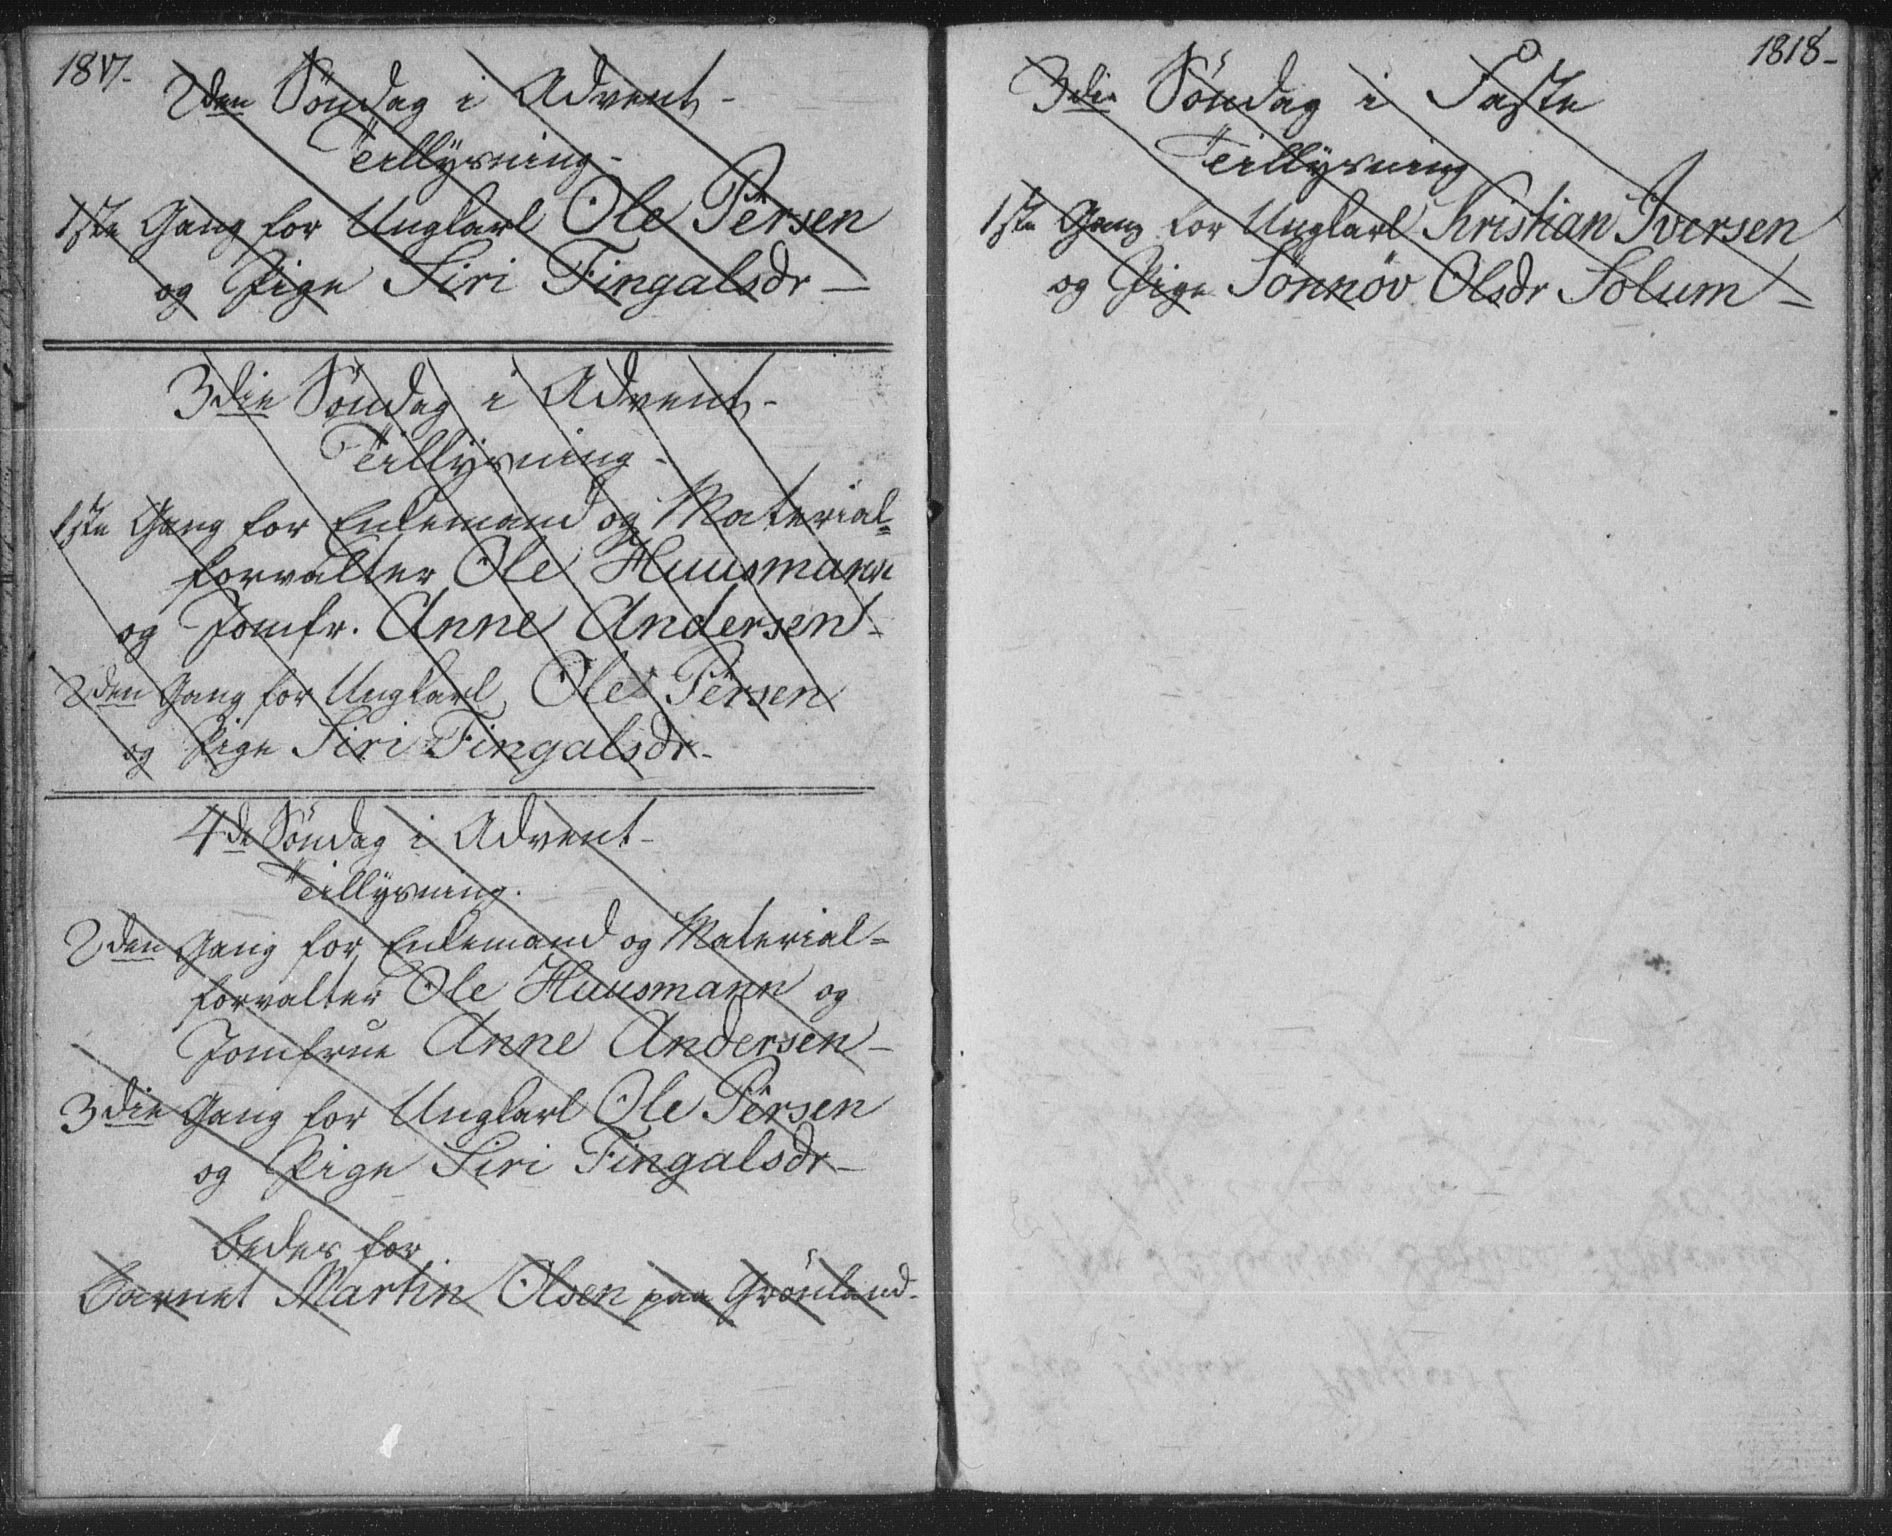 1817.
2den Söndag i Advent -
Tillysning -
1ste Gang for Ungkarl Ole Persen
og Pige Siri Fingalsdr —
3die Söndag i Advent -
Tillysning -
1ste Gang for Enkemand og Material=
forvalter Ole Huusmann
og Jomfr. Anne Andersen -
2den Gang for Ungkarl Ole Persen
og Pige Siri Fingalsdr -
4de Söndag i Advent -
Tillysning.
2den Gang for Enkemand og Material=
forvalter Ole Huusmann og
Jomfrue Anne Andersen -
3die Gang for Ungkarl Ole Persen
og Pige Siri Fingalsdr -
Bedes for
Barnet Martin Olsen paa Grönland -
1818 -
3die Söndag i Faste
Tillysning
1ste Gang for Ungkarl Kristian Iversen
og Pige Sönnöv Olsdr Solum -